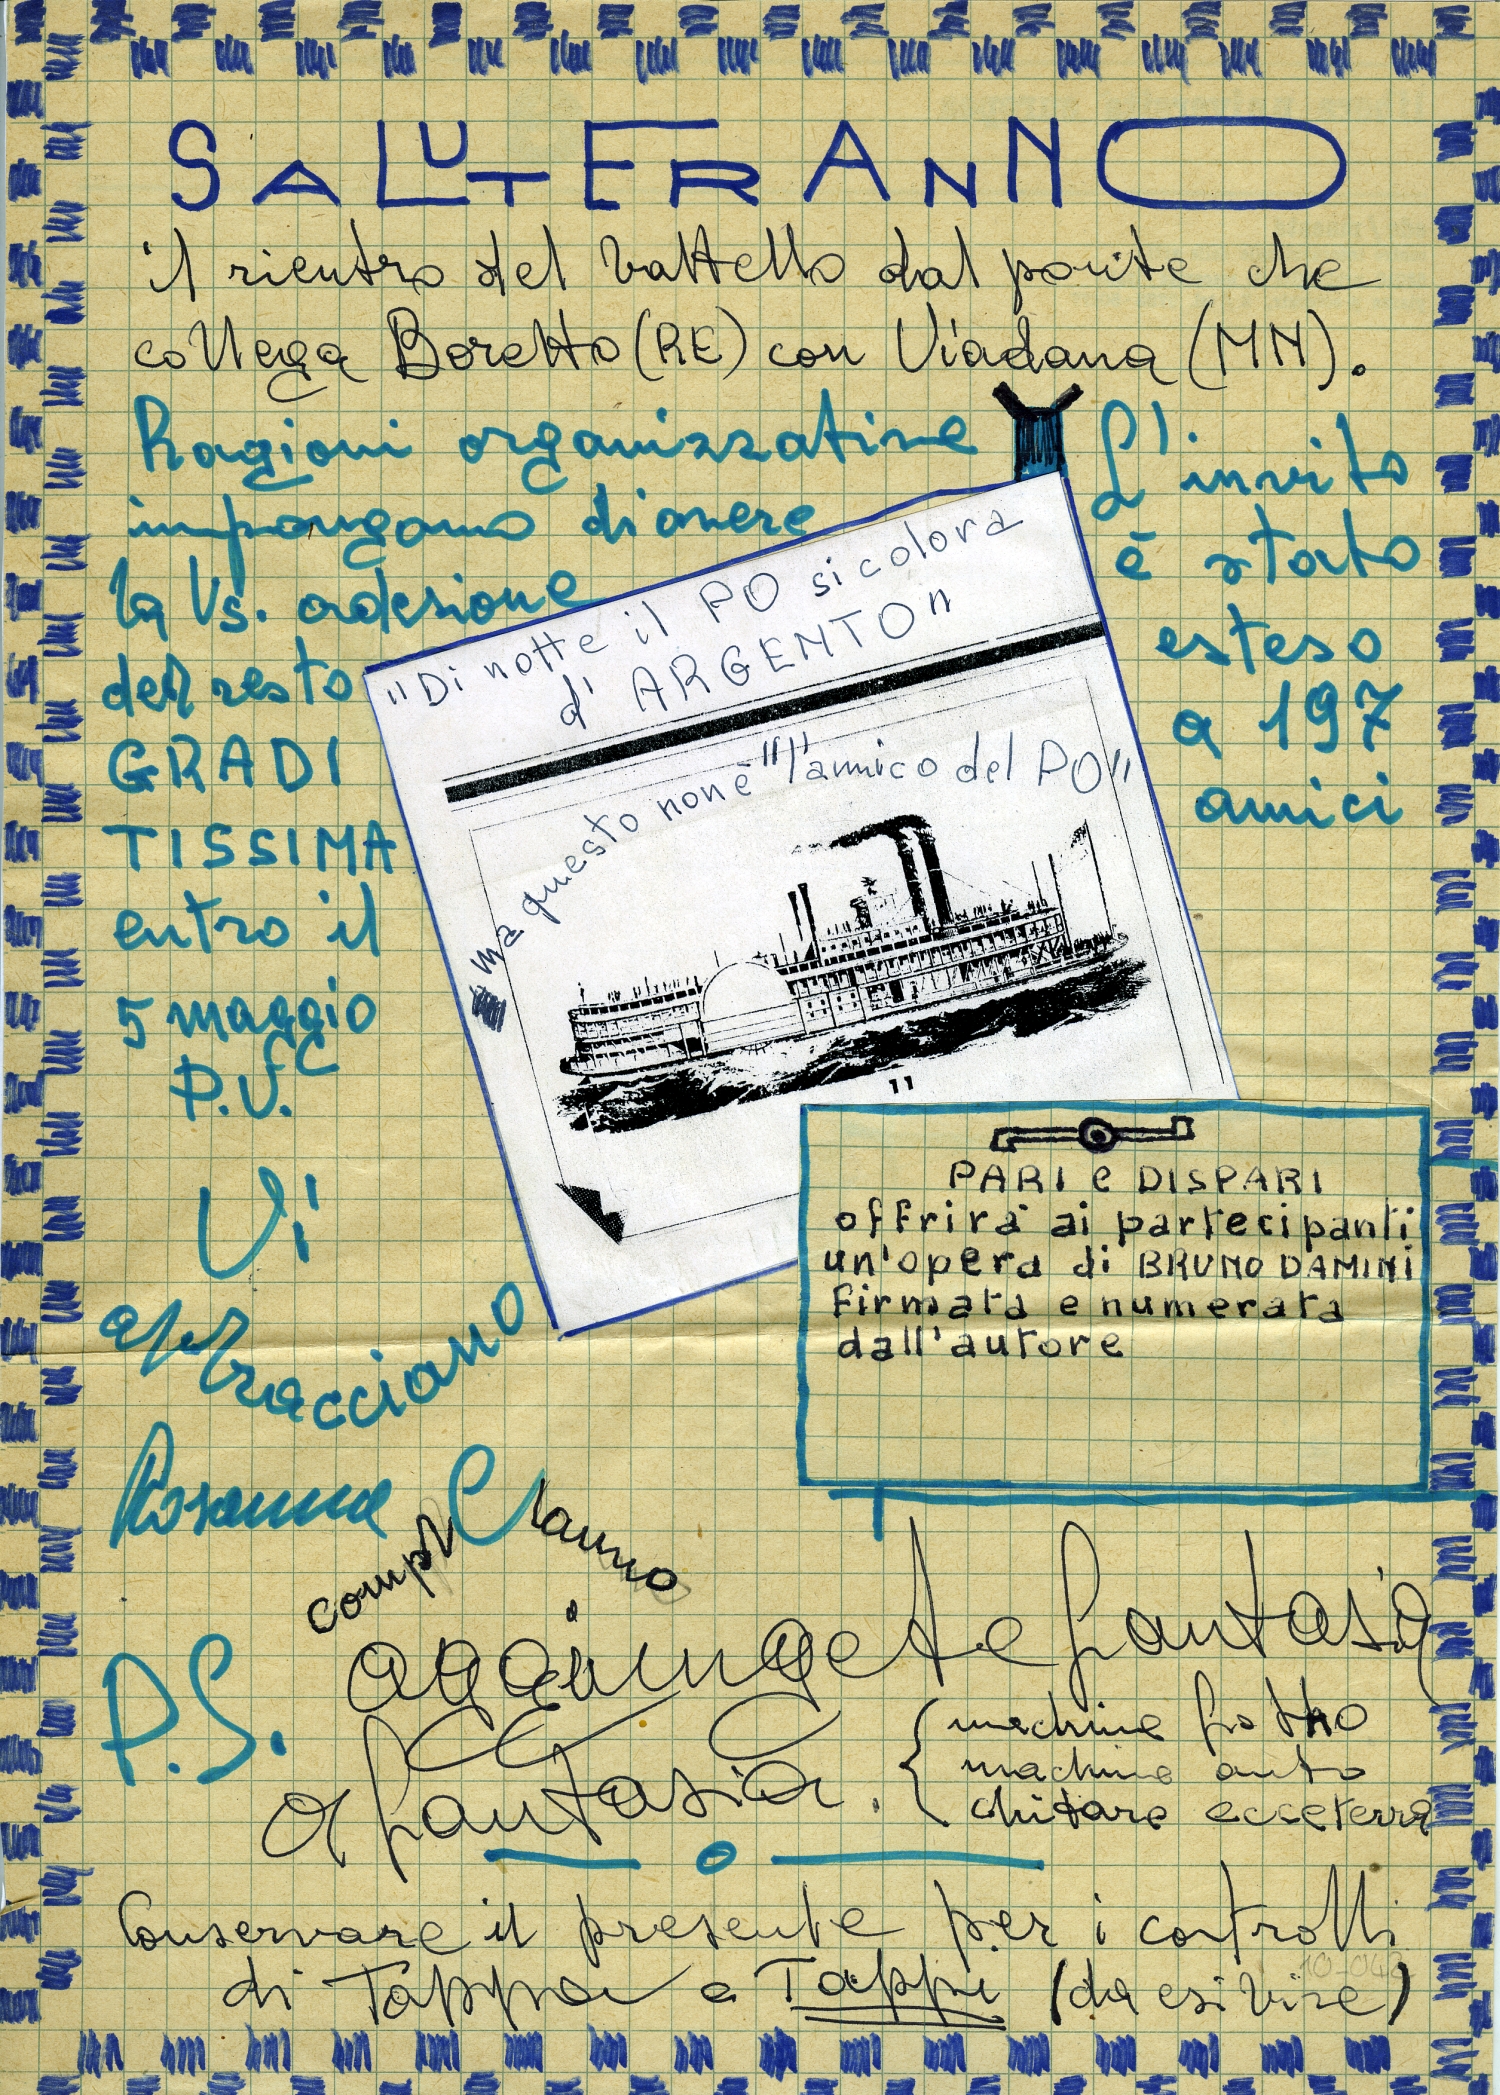 SALUTERANNO
il rientro del battello dal ponte che
collega Boretto (RE) con Viadana (MN).
Ragioni organizzative
impongono di avere
la Vs. adesione
del resto
GRADI
TISSIMA
entro il
5 maggio
P.V.
L'invito
è stato
esteso
a 197
amici
"Di notte il PO si colora
d'ARGENTO"
ma questo non è "l'amico del PO"
PARI e DISPARI
offrirà ai partecipanti
un'opera di BRUNO DAMINI
firmata e numerata
dall'autore
Vi
abbracciano
Rosanna
compleanno
P.S. aggiungete fantasia
a fantasia. { macchine fotto
macchine auto
chitare ecceterra
Conservare il presente per i controlli
di Tappa e Tappi (da esibire)
10-042